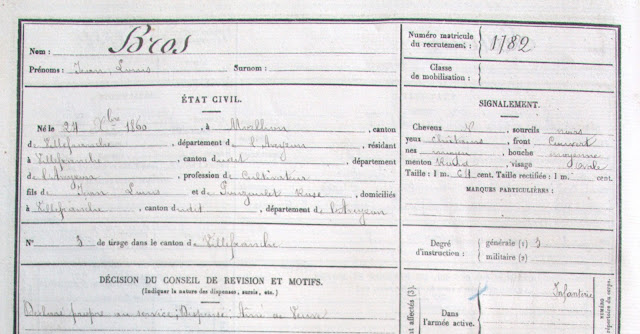 Nom : Bros
Prénoms : Jean Louis Surnom :
Numéro matricule
du recrutement : 1782
Classe
de mobilisation :
ÉTAT CIVIL.
Né le 29 Xbre 1860, à Morlhon, canton
de Villefranche, département de l'Aveyron, résidant
à Villefranche, canton dudit, département
de l'Aveyron, profession de Cultivateur
fils de Jean Louis et de Rose, domiciliés
à Villefranche, canton dudit, département de l'Aveyron
N° 3 de tirage dans le canton de Villefranche
SIGNALEMENT.
Cheveux N sourcils noirs
yeux châtains front Couvert
nez moyen, bouche moyenne
menton Rond visage ovale
Taille : 1 m. 64 cent. Taille rectifiée : 1 m. cent.
MARQUES PARTICULIÈRES :
Degré
d'instruction :
générale (1) 3
militaire (2)
DÉCISION DU CONSEIL DE REVISION ET MOTIFS.
(Indiquer la nature des dispenses, sursis, etc.)
Déclaré propre au service; Dispensé; Aîné de Veuve
affectés (3).
Dans
l'armée active.
Infanterie
NUMÉRO
répertoire du corps.